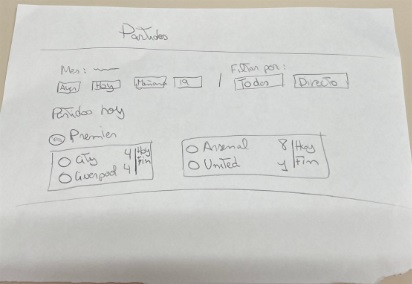 Partidos
Mes:
Ayer Hoy Mañana 19 / Filtrar por: Todos Directo
Partidos hoy
Premier
City 4 Hoy
Liverpool 4 Fin
Arsenal 8 Hoy
United 4 Fin